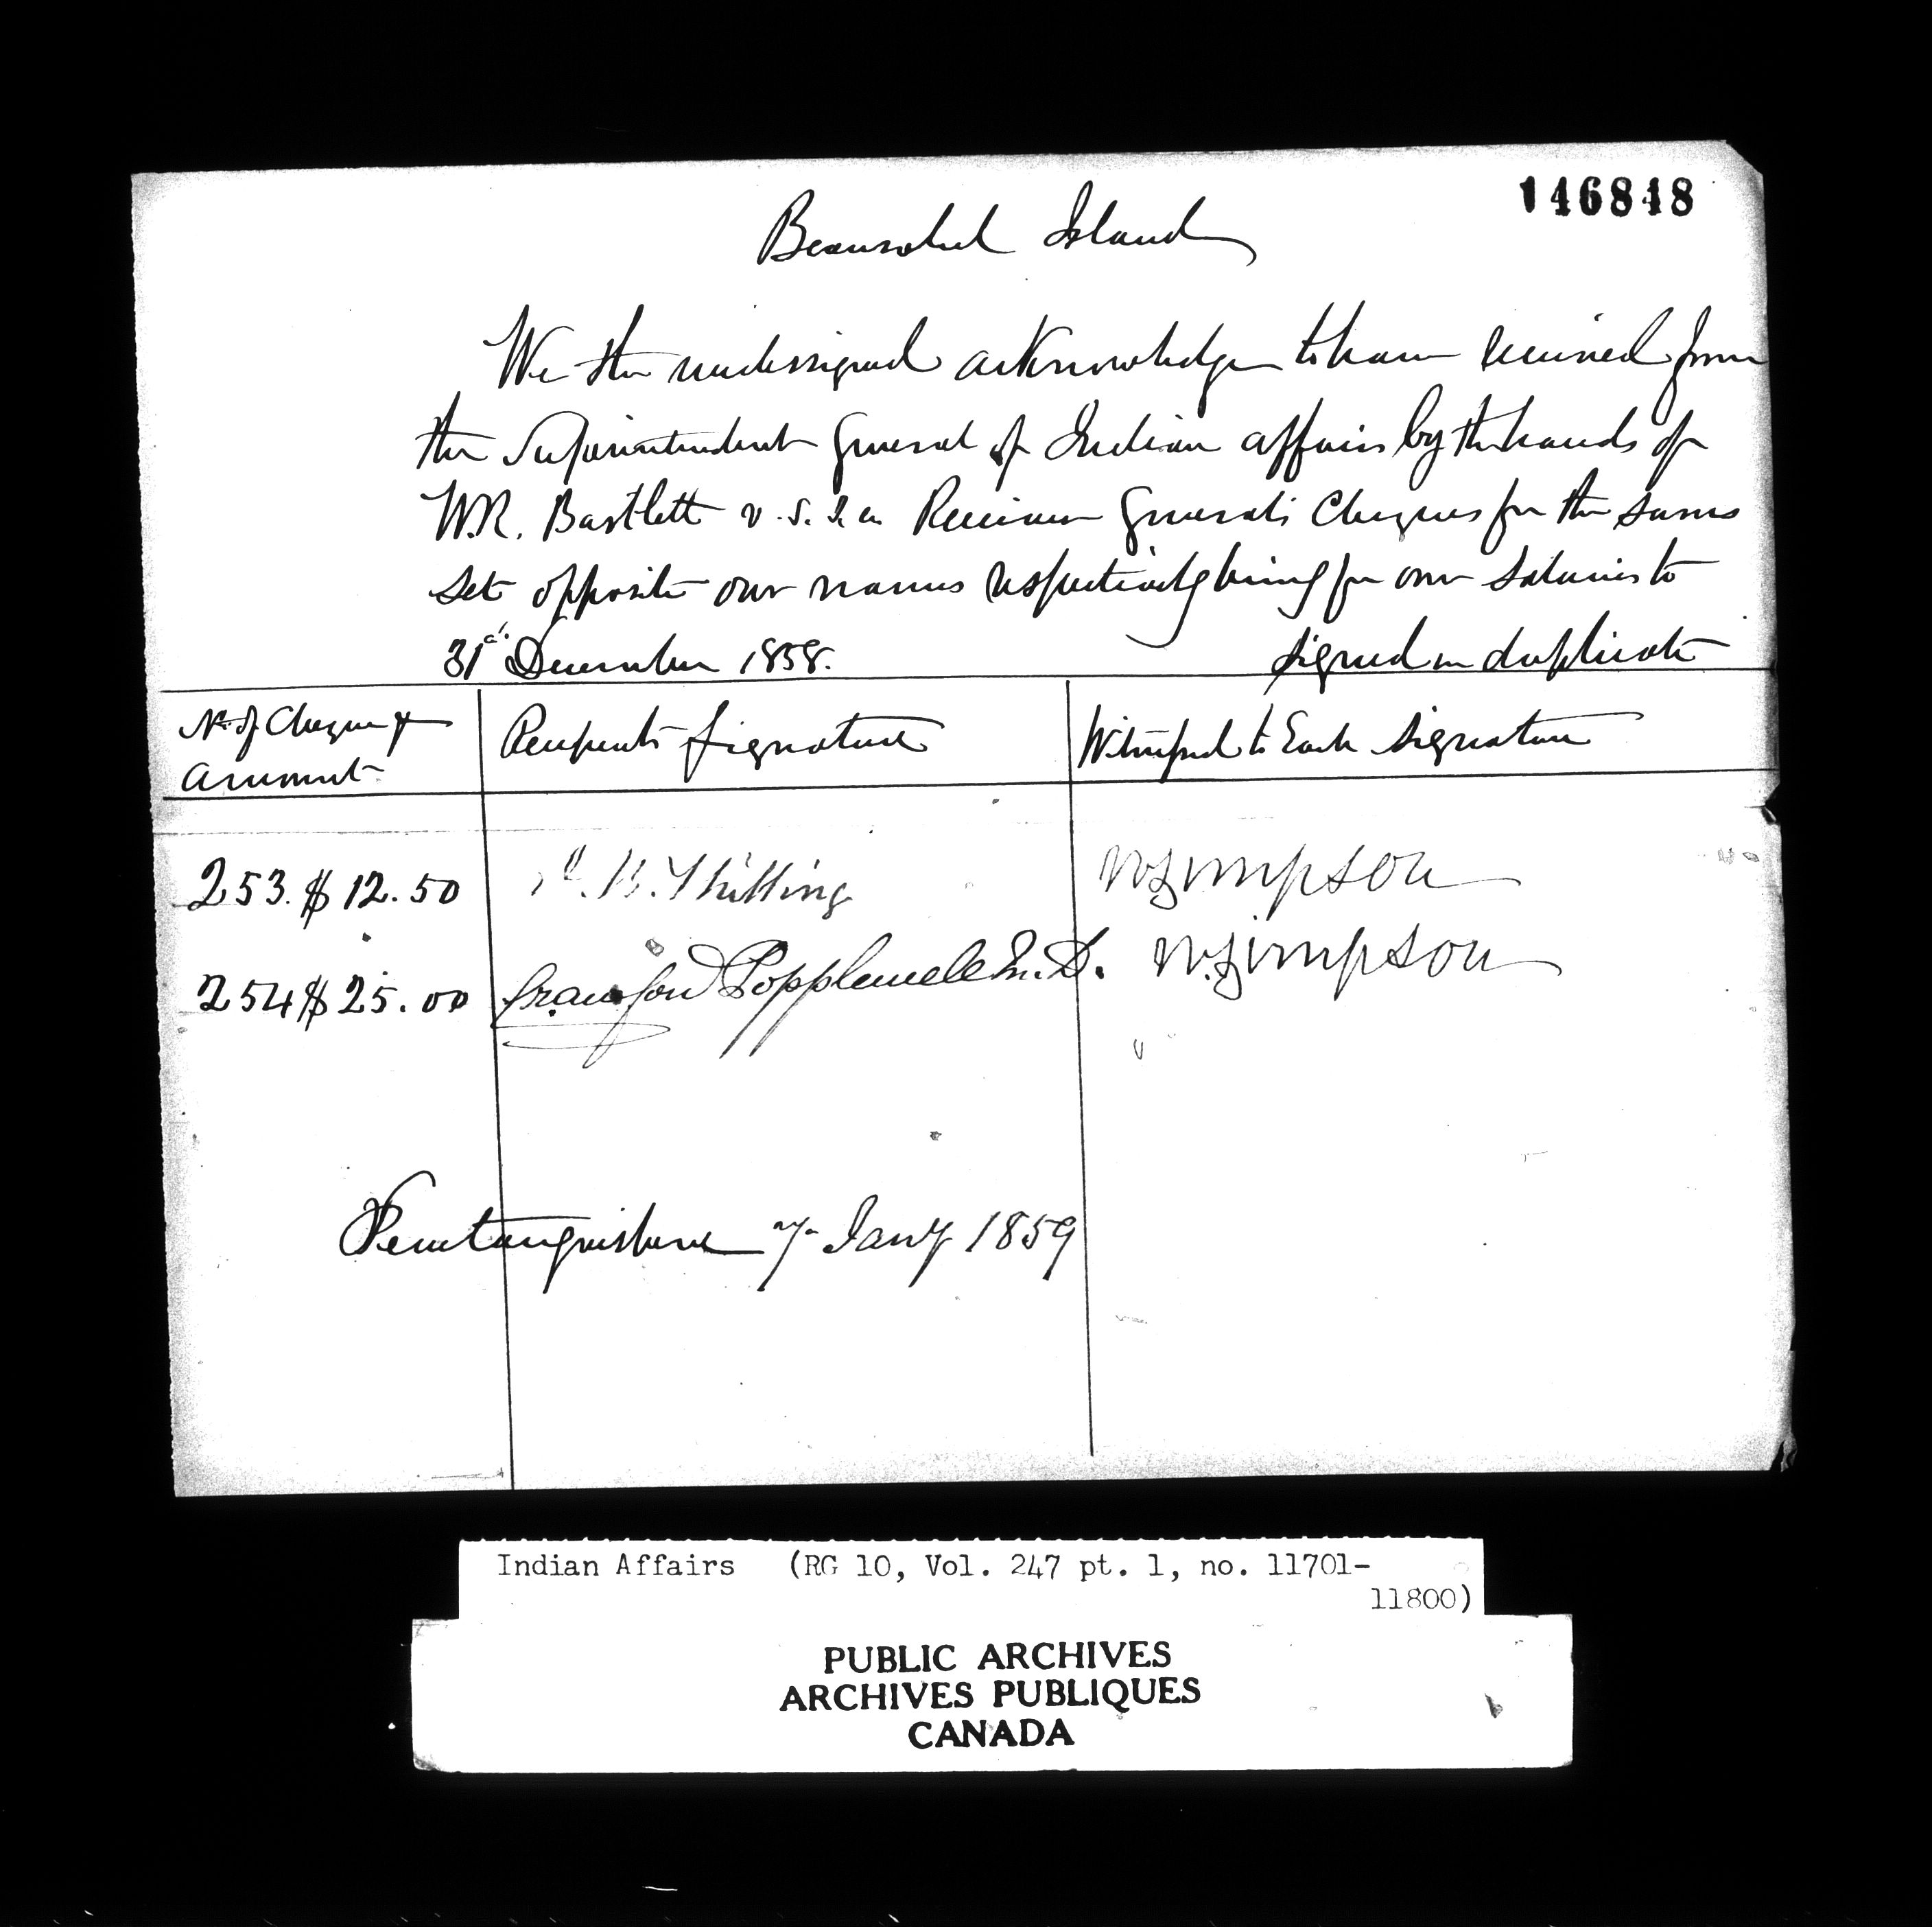 146848
Beausoleil Island
We the undersigned acknowledge to have received from
the Superintendent General of Indian affairs by the hands of
W.R. Bartlett v. S. I. a. Receiver Generals Cheques for the sums
set opposite our names respectively being for our Salaries to
31st December 1858. Signed in duplicate
No. of Cheque &
amount
Recipients Signature
Witnessed to Each Signature
253. $ 12.50
W Simpson
254 $ 25.00 Popplewell M.D. W. Simpson
Penetanguishene 7 Jany 1859
Indian Affairs (RG 10, Vol. 247 pt. 1, no. 11701-
11800)
PUBLIC ARCHIVES
ARCHIVES PUBLIQUES
CANADA